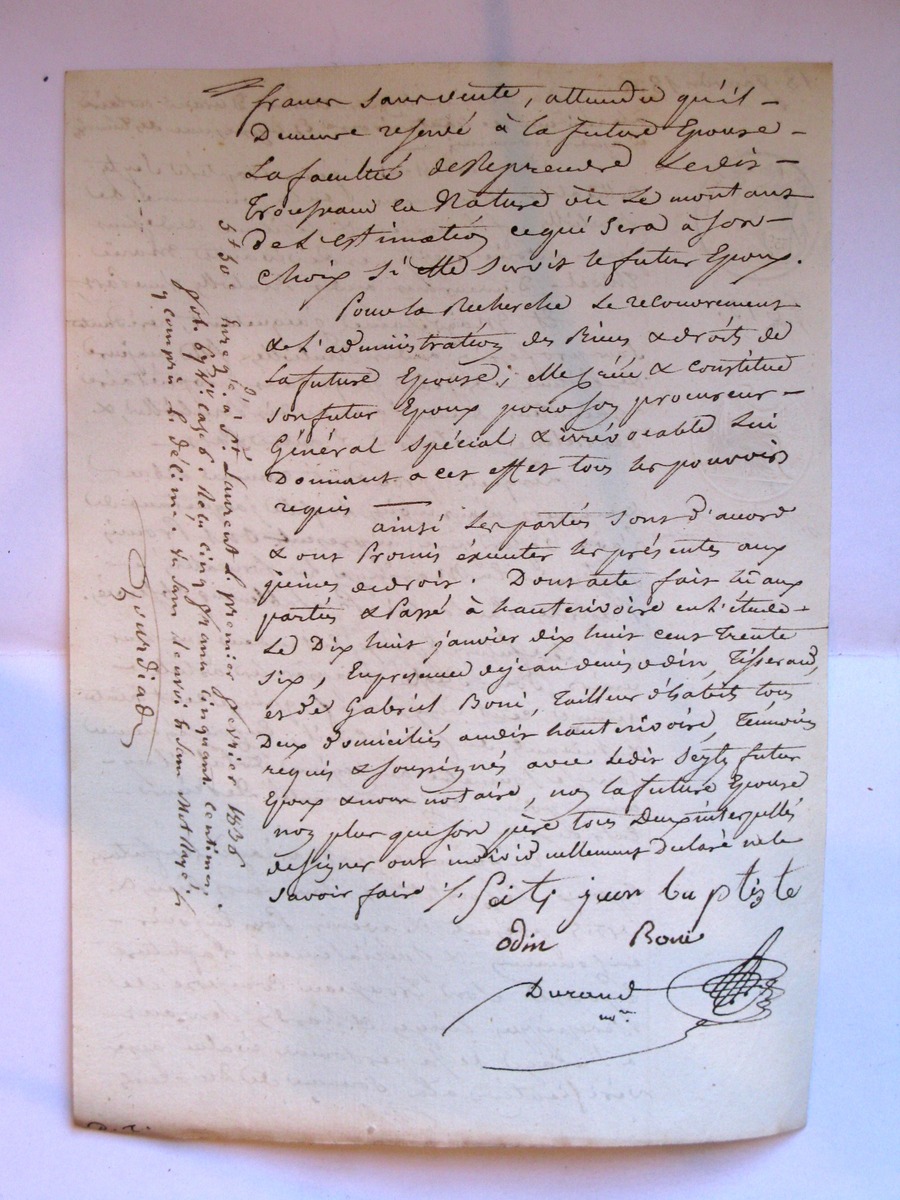 francs sans vente, attendu qu'il
Demeure reservé à la future Epouse
La faculté de Reprendre Ledit
Trousseau en Nature ou Le montant
de L'estimation ce qui sera à son
choix si elle survit le futur Epoux.
Pour la Recherche Le recouvrement
& L'administration des Biens & droits de
La future Epouse, elle crée & constitue
son futur Epoux pour son procureur
Général spécial & irrévocable Lui
Donnant a cet effet tous les pouvoirs
requis
ainsi Les parties sont d'acord
& ont Promis éxécuter les présentes aux
peines de droit. Dont acte fait lû aux
parties & Passé à hauterivoire en L'étude
Le Dix huit janvier dix huit cent Trente
six, En présence de jean denis odin, Tisserand,
et de Gabriel Boni, Tailleur d'habits tous
Deux domiciliés audit hauterivoire, Témoins
requis & soussignés avec Ledit Seyty futur
Epoux & nous notaire, non la future Epouse
non plus que son père tous Deux interpellés
de signer ont individuellement declaré ne le
savoir faire %. Seiti jean baptiste
odin Boni
Durand
nore.
5f 50c Enregé. à St. Laurent le premier février 1836.
fol. 69 Vo. case 6. Reçu cinq francs cinquante centimes,
y compris le décime
Gourdiad